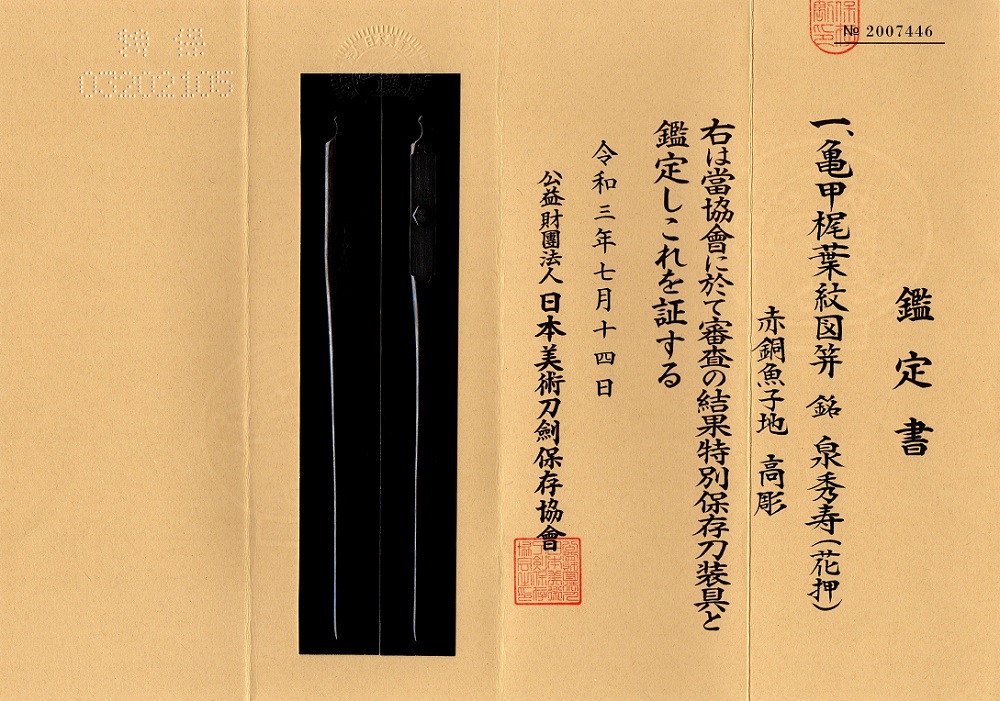 № 2007446
鑑定書
一、亀甲梶葉紋図笄 銘 泉秀寿(花押)
赤銅魚子地 高彫
右は當協會に於て審査の結果特別保存刀装具と
鑑定しこれを証する
令和三年七月十四日
公益財團法人 日本美術刀劍保存協會
特保
03202105